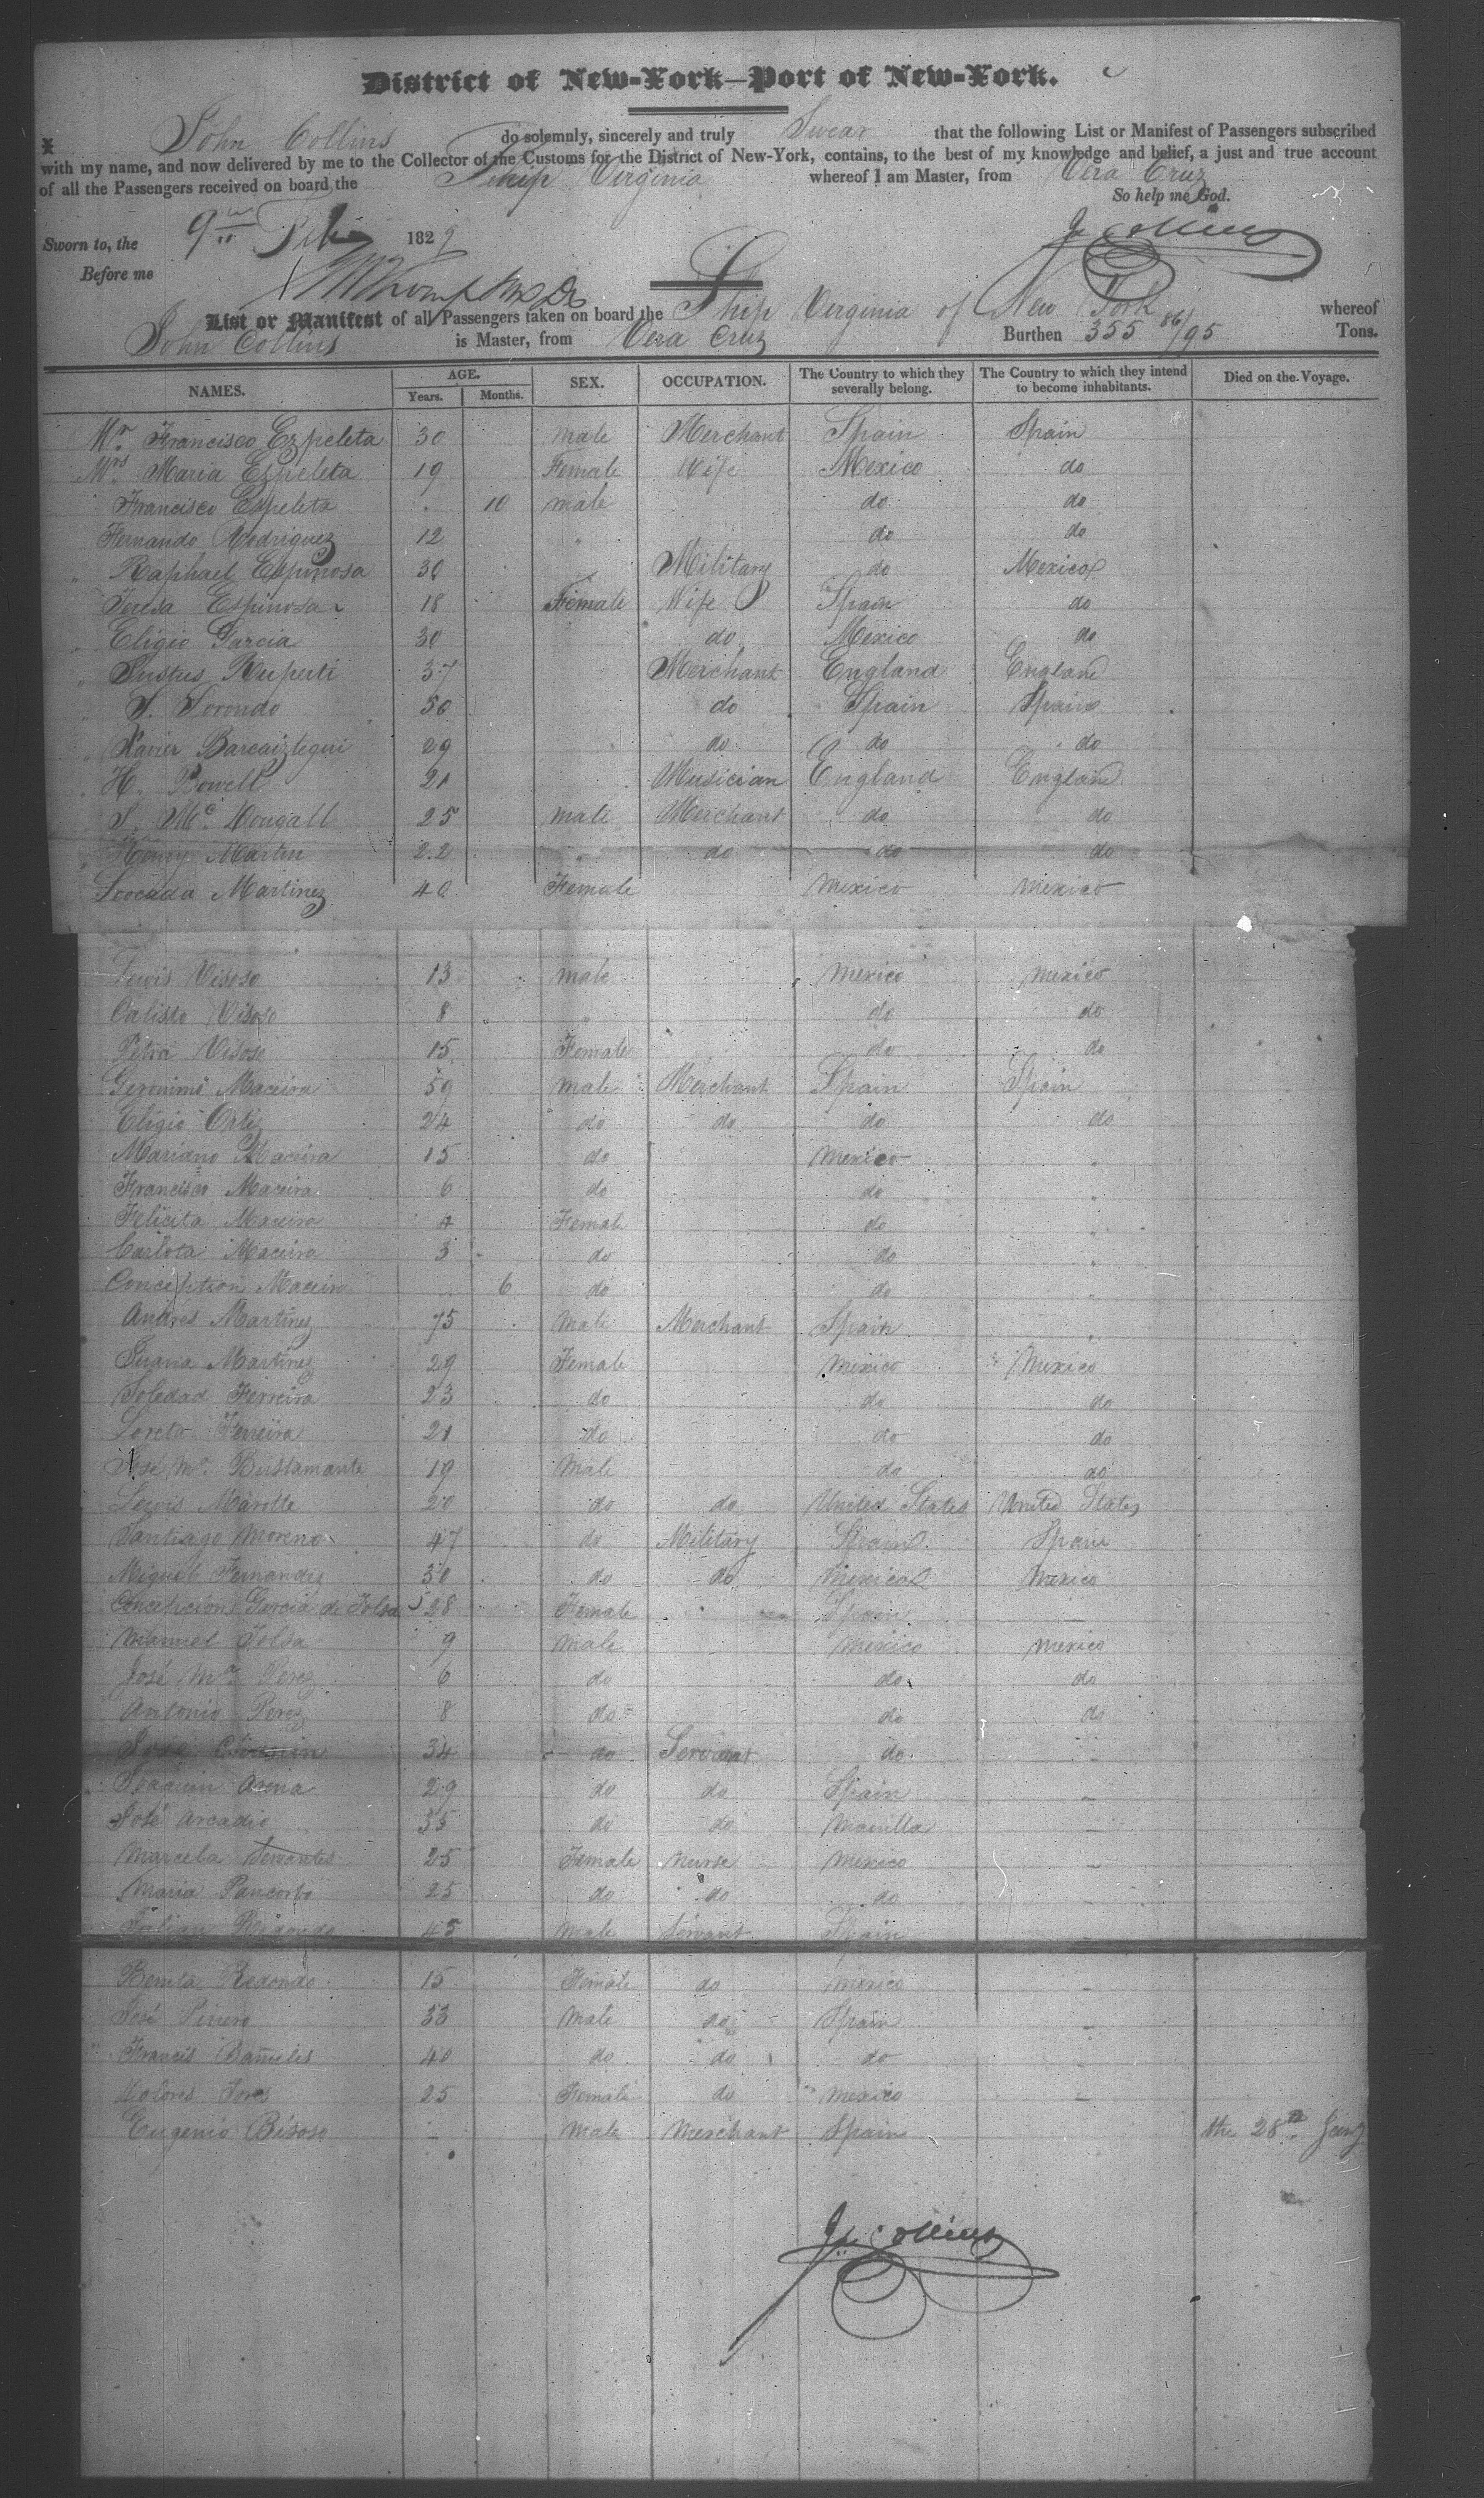 District of New-York—Port of New-York.
I John Collins do solemnly, sincerely and truly Swear that the following List or Manifest of Passengers subscribed
with my name, and now delivered by me to the Collector of the Customs for the District of New-York, contains, to the best of my knowledge and belief, a just and true account
of all the Passengers received on board the Ship Virginia whereof I am Master, from Vera Cruz
So help me God.
Sworn to, the 9th Feby 1829 Jn Collins
Before me
List or Manifest of all Passengers taken on board the Ship Virginia of New York whereof
John Collins is Master, from Vera Cruz Burthen 355 86/95 Tons.
NAMES. AGE. Years. Months. SEX. OCCUPATION. The Country to which they severally belong. The Country to which they intend to become inhabitants. Died on the Voyage.
Mr. Francisco Ezpeleta 30 male Merchant Spain Spain
Mrs. Maria Ezpeleta 19 Female Wife Mexico do
Francisco Ezpeleta 10 male do do
Fernando Rodriguez 12 " do do
" Raphael Espinosa 30 " Military do Mexico
Teresa Espinosa 18 Female Wife Spain do
" Eligio Garcia 30 do Mexico do
" Justus Ruperti 37 Merchant England England
" S. Sorondo 50 do Spain Spain
" Xavier Barcaiztegui 29 do do do
" H. Powell 21 Musician England England
" S. Mc. Dougall 25 male Merchant do do
" Henry Martin 22 " do do do
Leocada Martinez 40 Female Mexico Mexico
Lewis Visoso 13 male Mexico Mexico
Calisto Visoso 8 " do do
Petra Visoso 15 Female do do
Geronimo Maceira 59 male Merchant Spain Spain
Eligio Ortiz 24 do do do do
Mariano Maceira 15 do Mexico "
Francisco Maceira 6 do do "
Felicita Maceira 4 Female do "
Carlota Maceira 3 do do "
Conception Maceira 6 do do "
Andres Martinez 75 Male Merchant Spain "
Martinez 29 Female Mexico Mexico
Soledad Ferreira 23 do do do
Loreto Ferreira 21 do do do
José Ma. Bustamante 19 Male do do
Lewis Marotte 20 do do United States United States
Santiago Moreno 47 do Military Spain Spain
Miguel Fernandez 30 do do Mexico Mexico
Concepcion Garcia de Tolsa 28 Female Spain —
Manuel Tolsa 9 Male Mexico Mexico
José Ma. Perez 6 do do do
Antonio Perez 8 do do do
José 34 do Servant do —
Joaquin Arena 29 do do Spain —
José Arcadio 35 do do Manilla —
Marcela Servantes 25 Female Nurse Mexico —
Maria Pancorbo 25 do do do —
Julian Redondo 45 Male Servant Spain —
Benita Redondo 15 Female do Mexico —
José Pinero 33 Male do Spain —
Francis 40 do do do —
Dolores 25 Female do Mexico —
Eugenio Bisoso — Male Merchant Spain the 28th Jany
Jn Collins